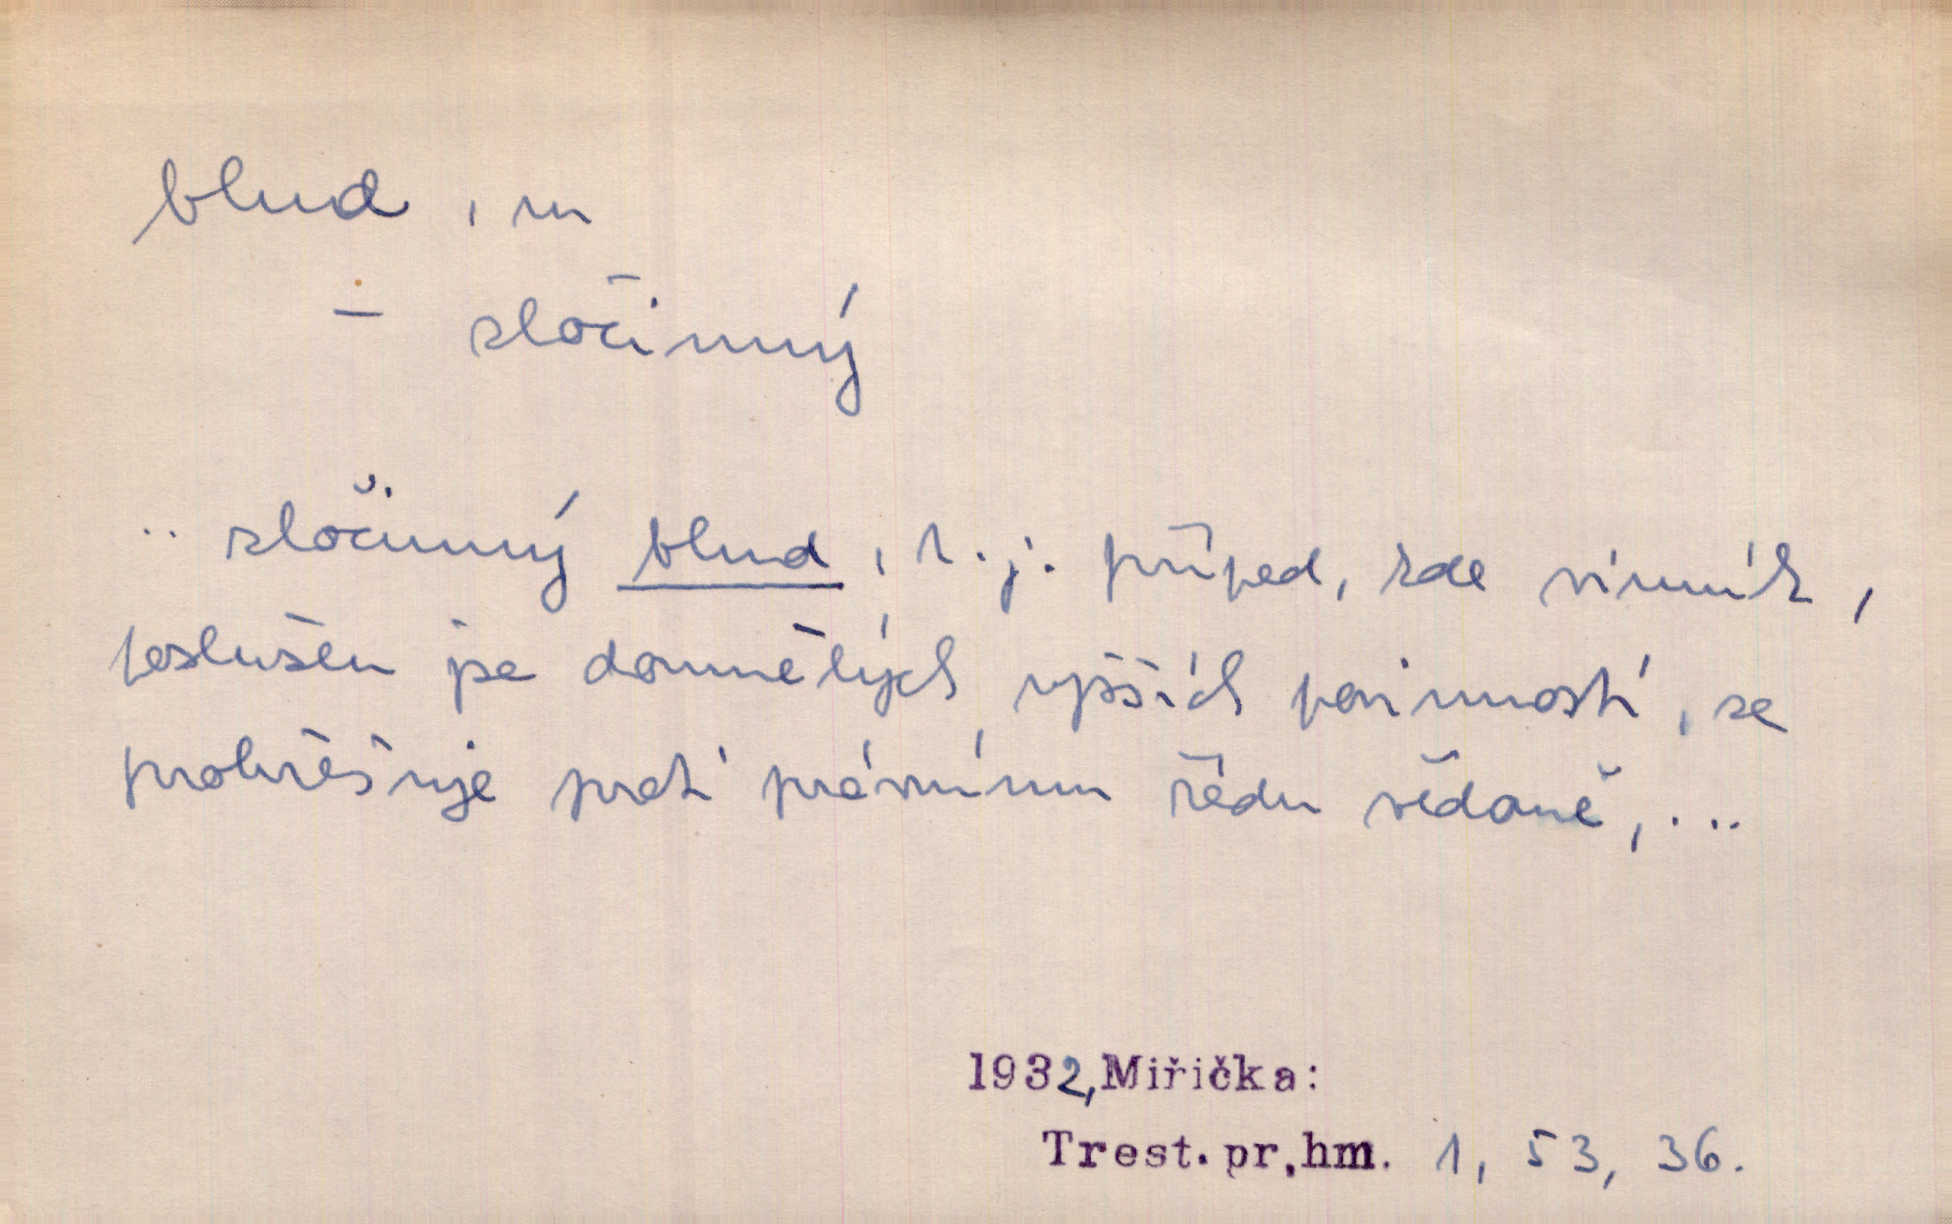 blud, m
– zločinný
.. zločinný blud, t. j. případ, kde vinník,
poslušen jsa domnělých vyšších povinností, se
prohřešuje proti právnímu řádu vědomě, ...
1932, Miřička:
Trest. pr. hm. 1, 53, 36.